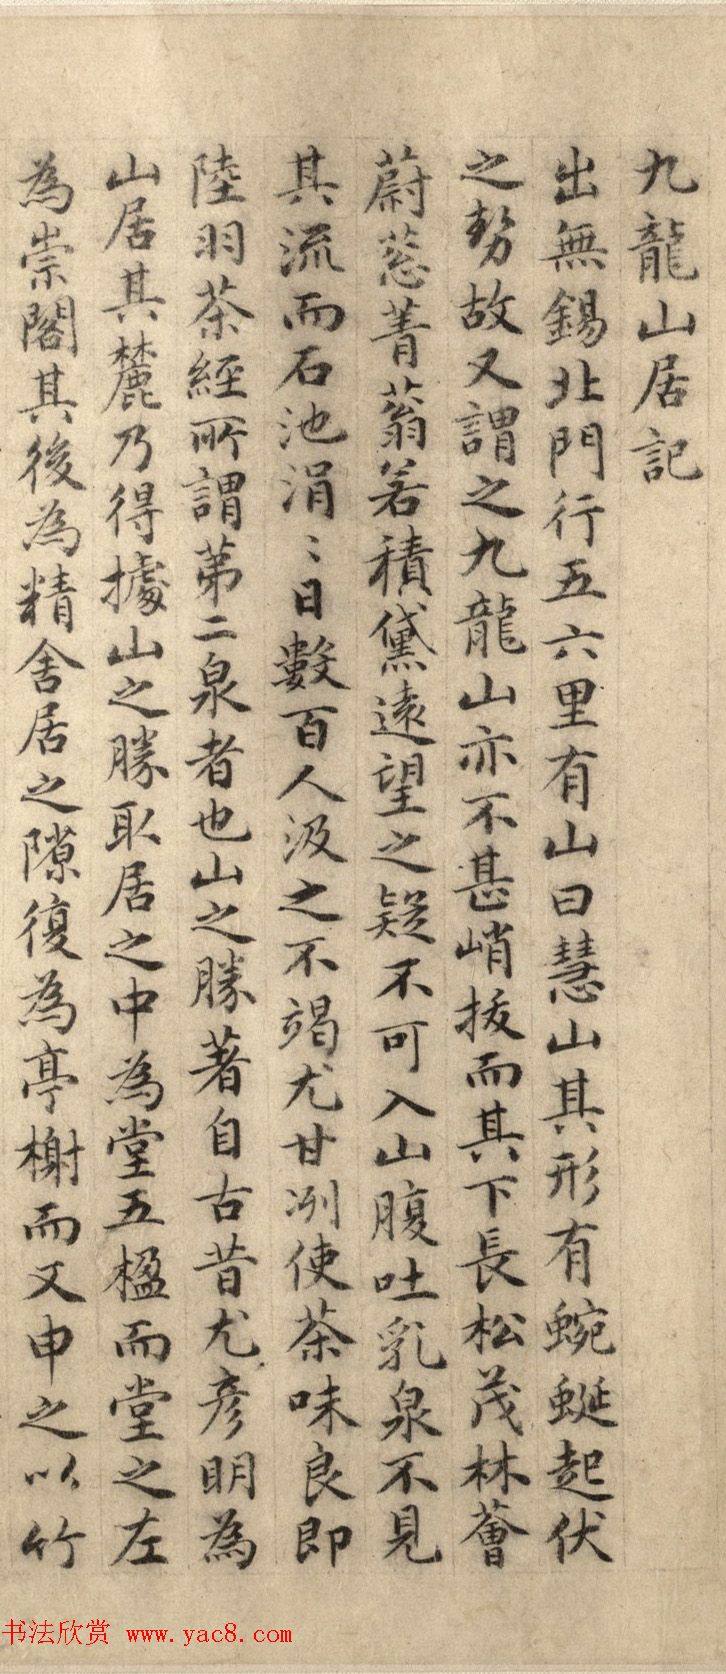 九龍山居記
出無錫北門行五六里有山曰慧山其形有蜿蜒起伏
之勢故又謂之九龍山亦不甚峭拔而其下長松茂林薈
蔚葱菁蓊若積黛遠望之疑不可入山腹吐乳泉不見
其流而石池涓〻日數百人汲之不竭尤甘冽使茶味良即
陸羽茶經所謂第二泉者也山之勝著自古昔尤彥明為
山居其麓乃得據山之勝取居之中為堂五楹而堂之左
為崇閣其後為精舍居之隙復為亭榭而又申之以竹
书法欣赏 www.yac8.com